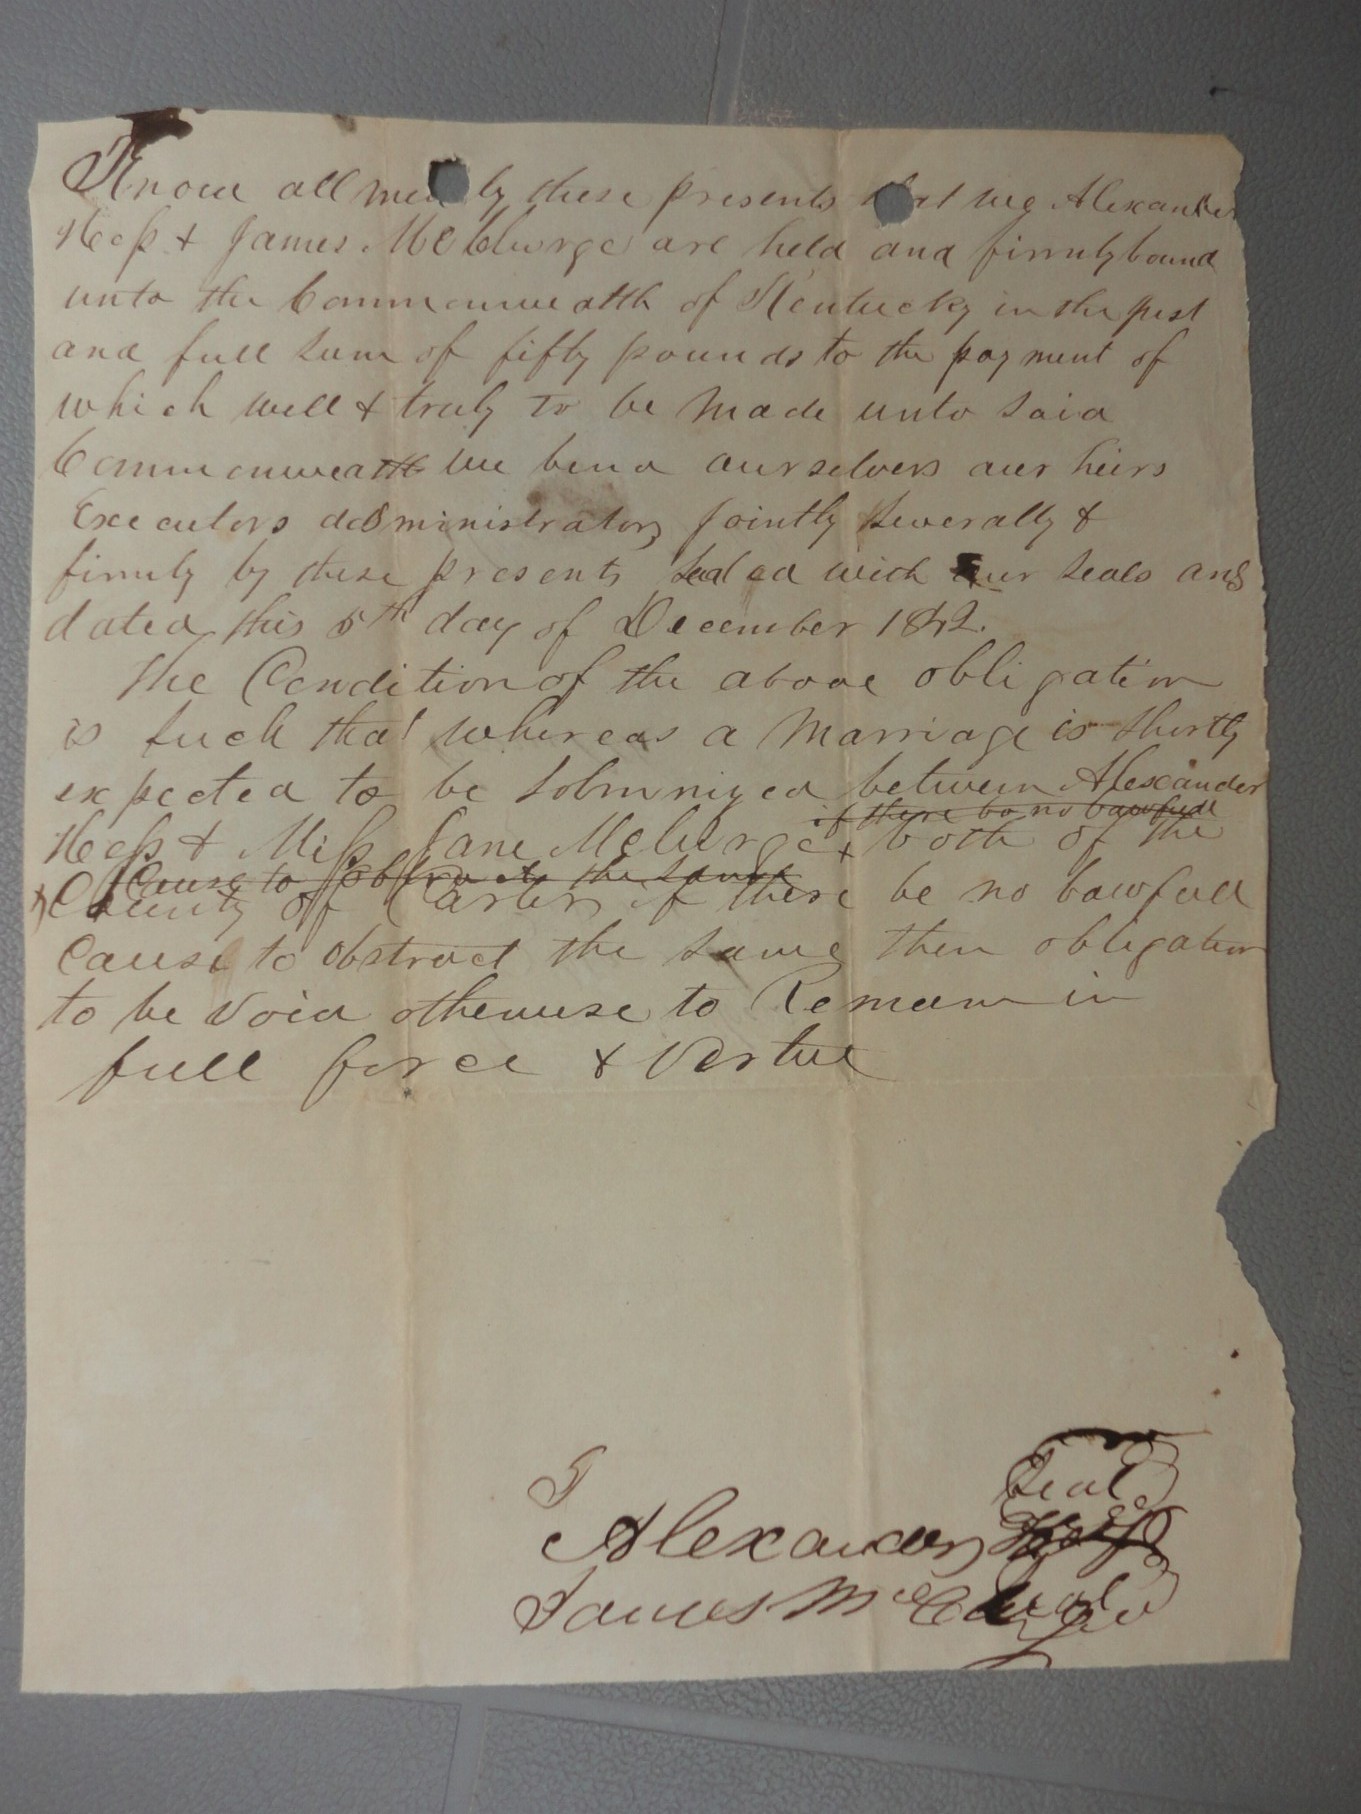 Know all men by these presents that we Alexander
Hess & James McClurge are held and firmly bound
unto the Commonwealth of Kentucky in the just
and full sum of fifty pounds to the payment of
which well & truly to be made unto said
Commonwealth we bind ourselvers our heirs
Executors administrators jointly severally &
firmly by these presents Sealed with our seals and
dated this 5th day of December 1842.
The Condition of the above obligation
is such that whereas a marriage is shortly
expected to be solmnized between Alexander
if there be no lawfull
Hess & Miss Jane McClurge & both of the
Cause to obstruct the same
County of Carter if there be no lawfull
Cause to obstruct the same then obligation
to be void otherwise to Remain in
full force & vertue
Seal
Alexander Hess
James McClurge Seal